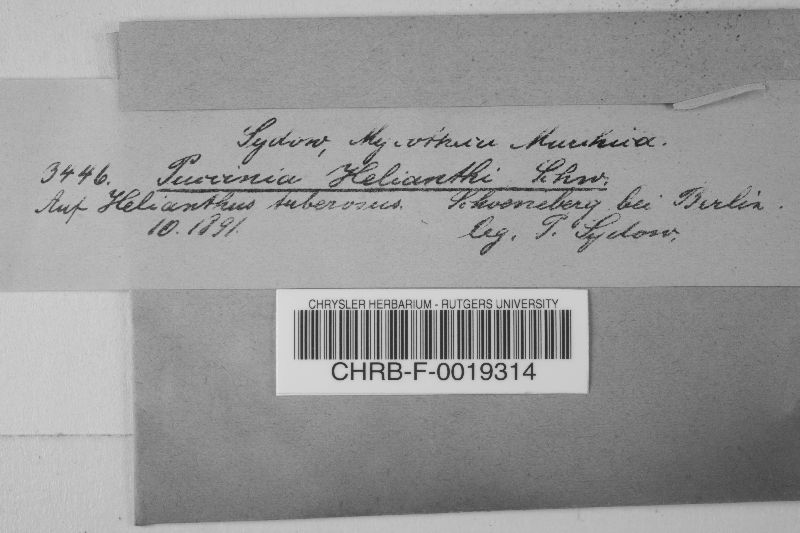 Sydow, Mycotheca Marchica.
3446. Puccinia Helianthi Schw.
Auf Helianthus tuberosus. Schoeneberg bei Berlin.
10. 1891. leg. P. Sydow.
CHRYSLER HERBARIUM - RUTGERS UNIVERSITY
CHRB-F-0019314